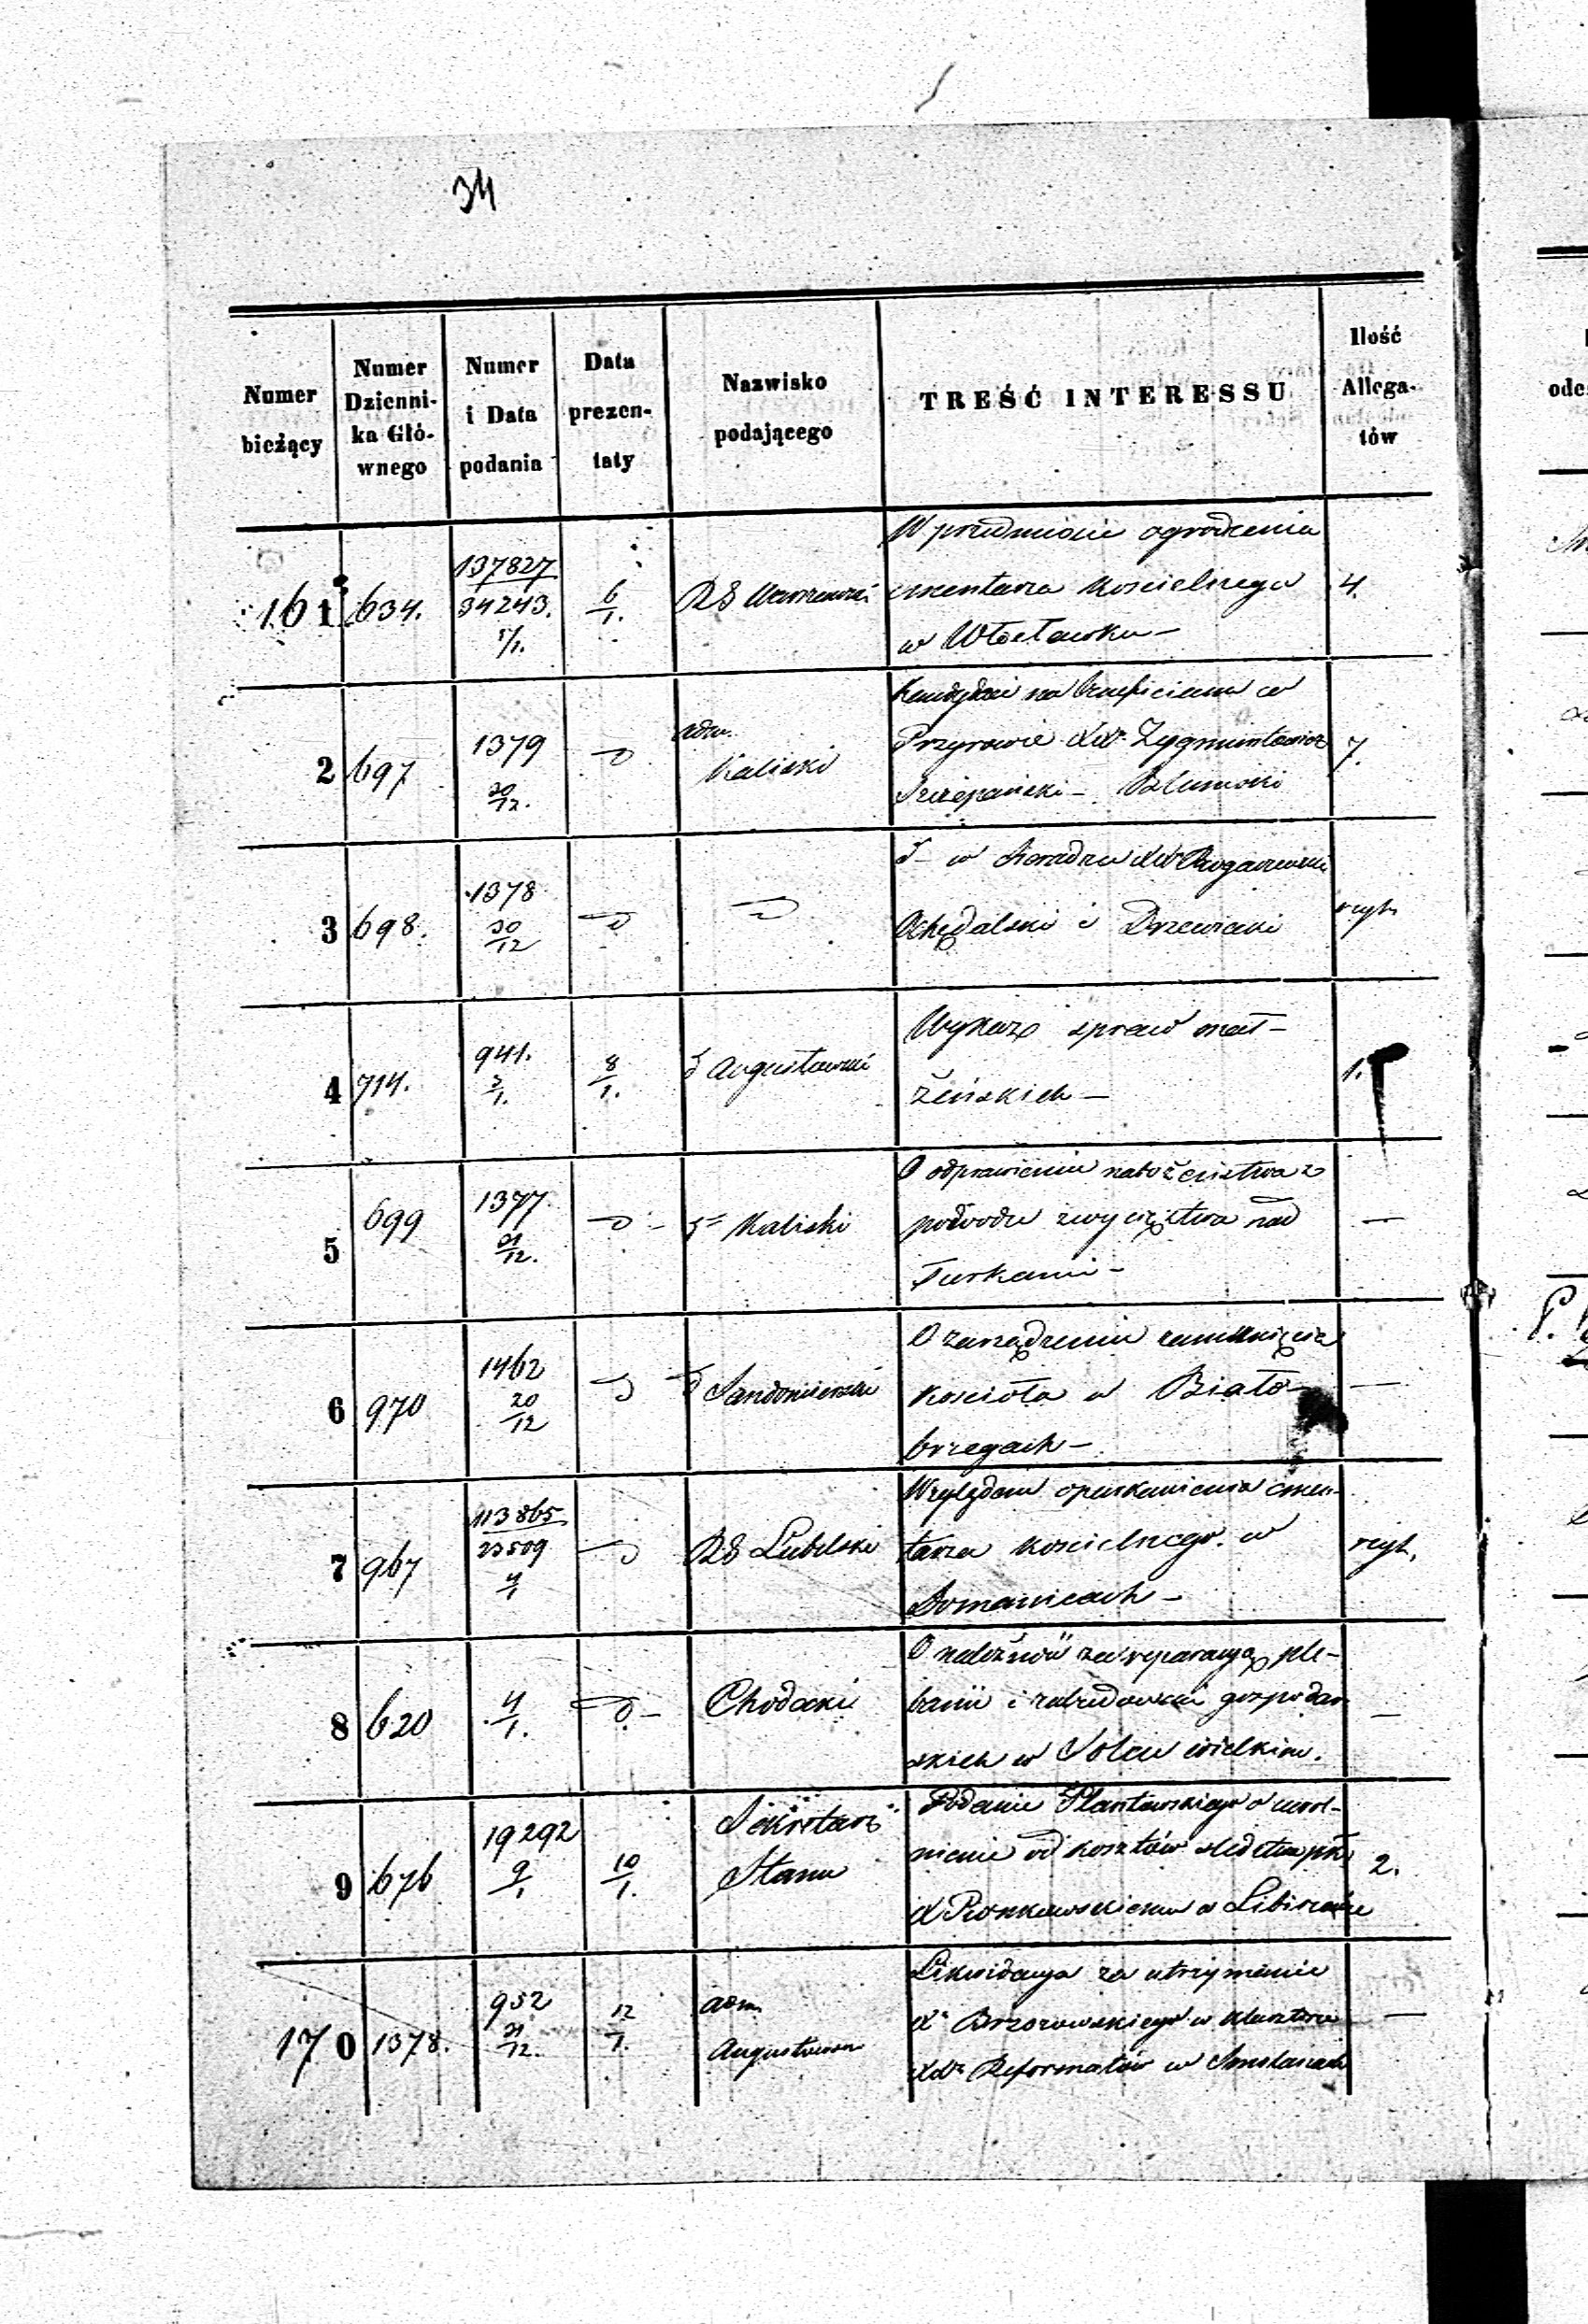 34
Numer bieżący | Numer Dzienni- ka Głó- wnego | Numer i Data podania | Data prezen- taty | Nazwisko podającego | TREŚĆ INTERESSU | Ilość Allega- tów
161 | 634. | 137827 / 34243. | 6/1. | RG Warszawski | W przedmiocie ogrodzenia
cmentarza Kościelnego | 4.
w Włocławku –
2 | 697 | 1379 30/12. | adm. Kaliski | Kandydaci na beneficium w
Przyrowie Zygmuntowicz | 7.
Szczepański –
3 | 698. | 1378 30/12 | w Sieradzu
Ochędalski i Drzewiecki
4 | 714. | 941. 3/1. | 8/1. | Augustowski | Wykaz spraw mał- | 1.
żeńskich –
5 | 699 | 1377. 31/12. | Kaliski | O odprawieniu nabożeństwa z
powodu zwycięstwa nad | —
Turkami –
6 | 970 | 1462 20/12 | Sandomierski | O zarządzeniu zamknięcia
Kościoła w Biało- | —
brzegach –
7 | 967 | 113865 / 23509 4/1 | RG Lubelski | Względem oparkanienia cmen-
tarza Kościelnego w
Domanicach –
8 | 620 | 4/1. | Chodacki | O należność za reparacyą ple-
banii i zabudowań gospodar | —
skich w Solcu wielkim.
9 | 676 | 19292 9/1 | 10/1. | Sekretarz Stanu | Podanie o uwol-
nienie od kosztów | 2.
w
170 | 1378. | 952 31/12. | 12/1. | adm. Augustowski | Likwidacya za utrzymanie
X. Brzozowskiego w klasztorze | —
XX. Reformatów w